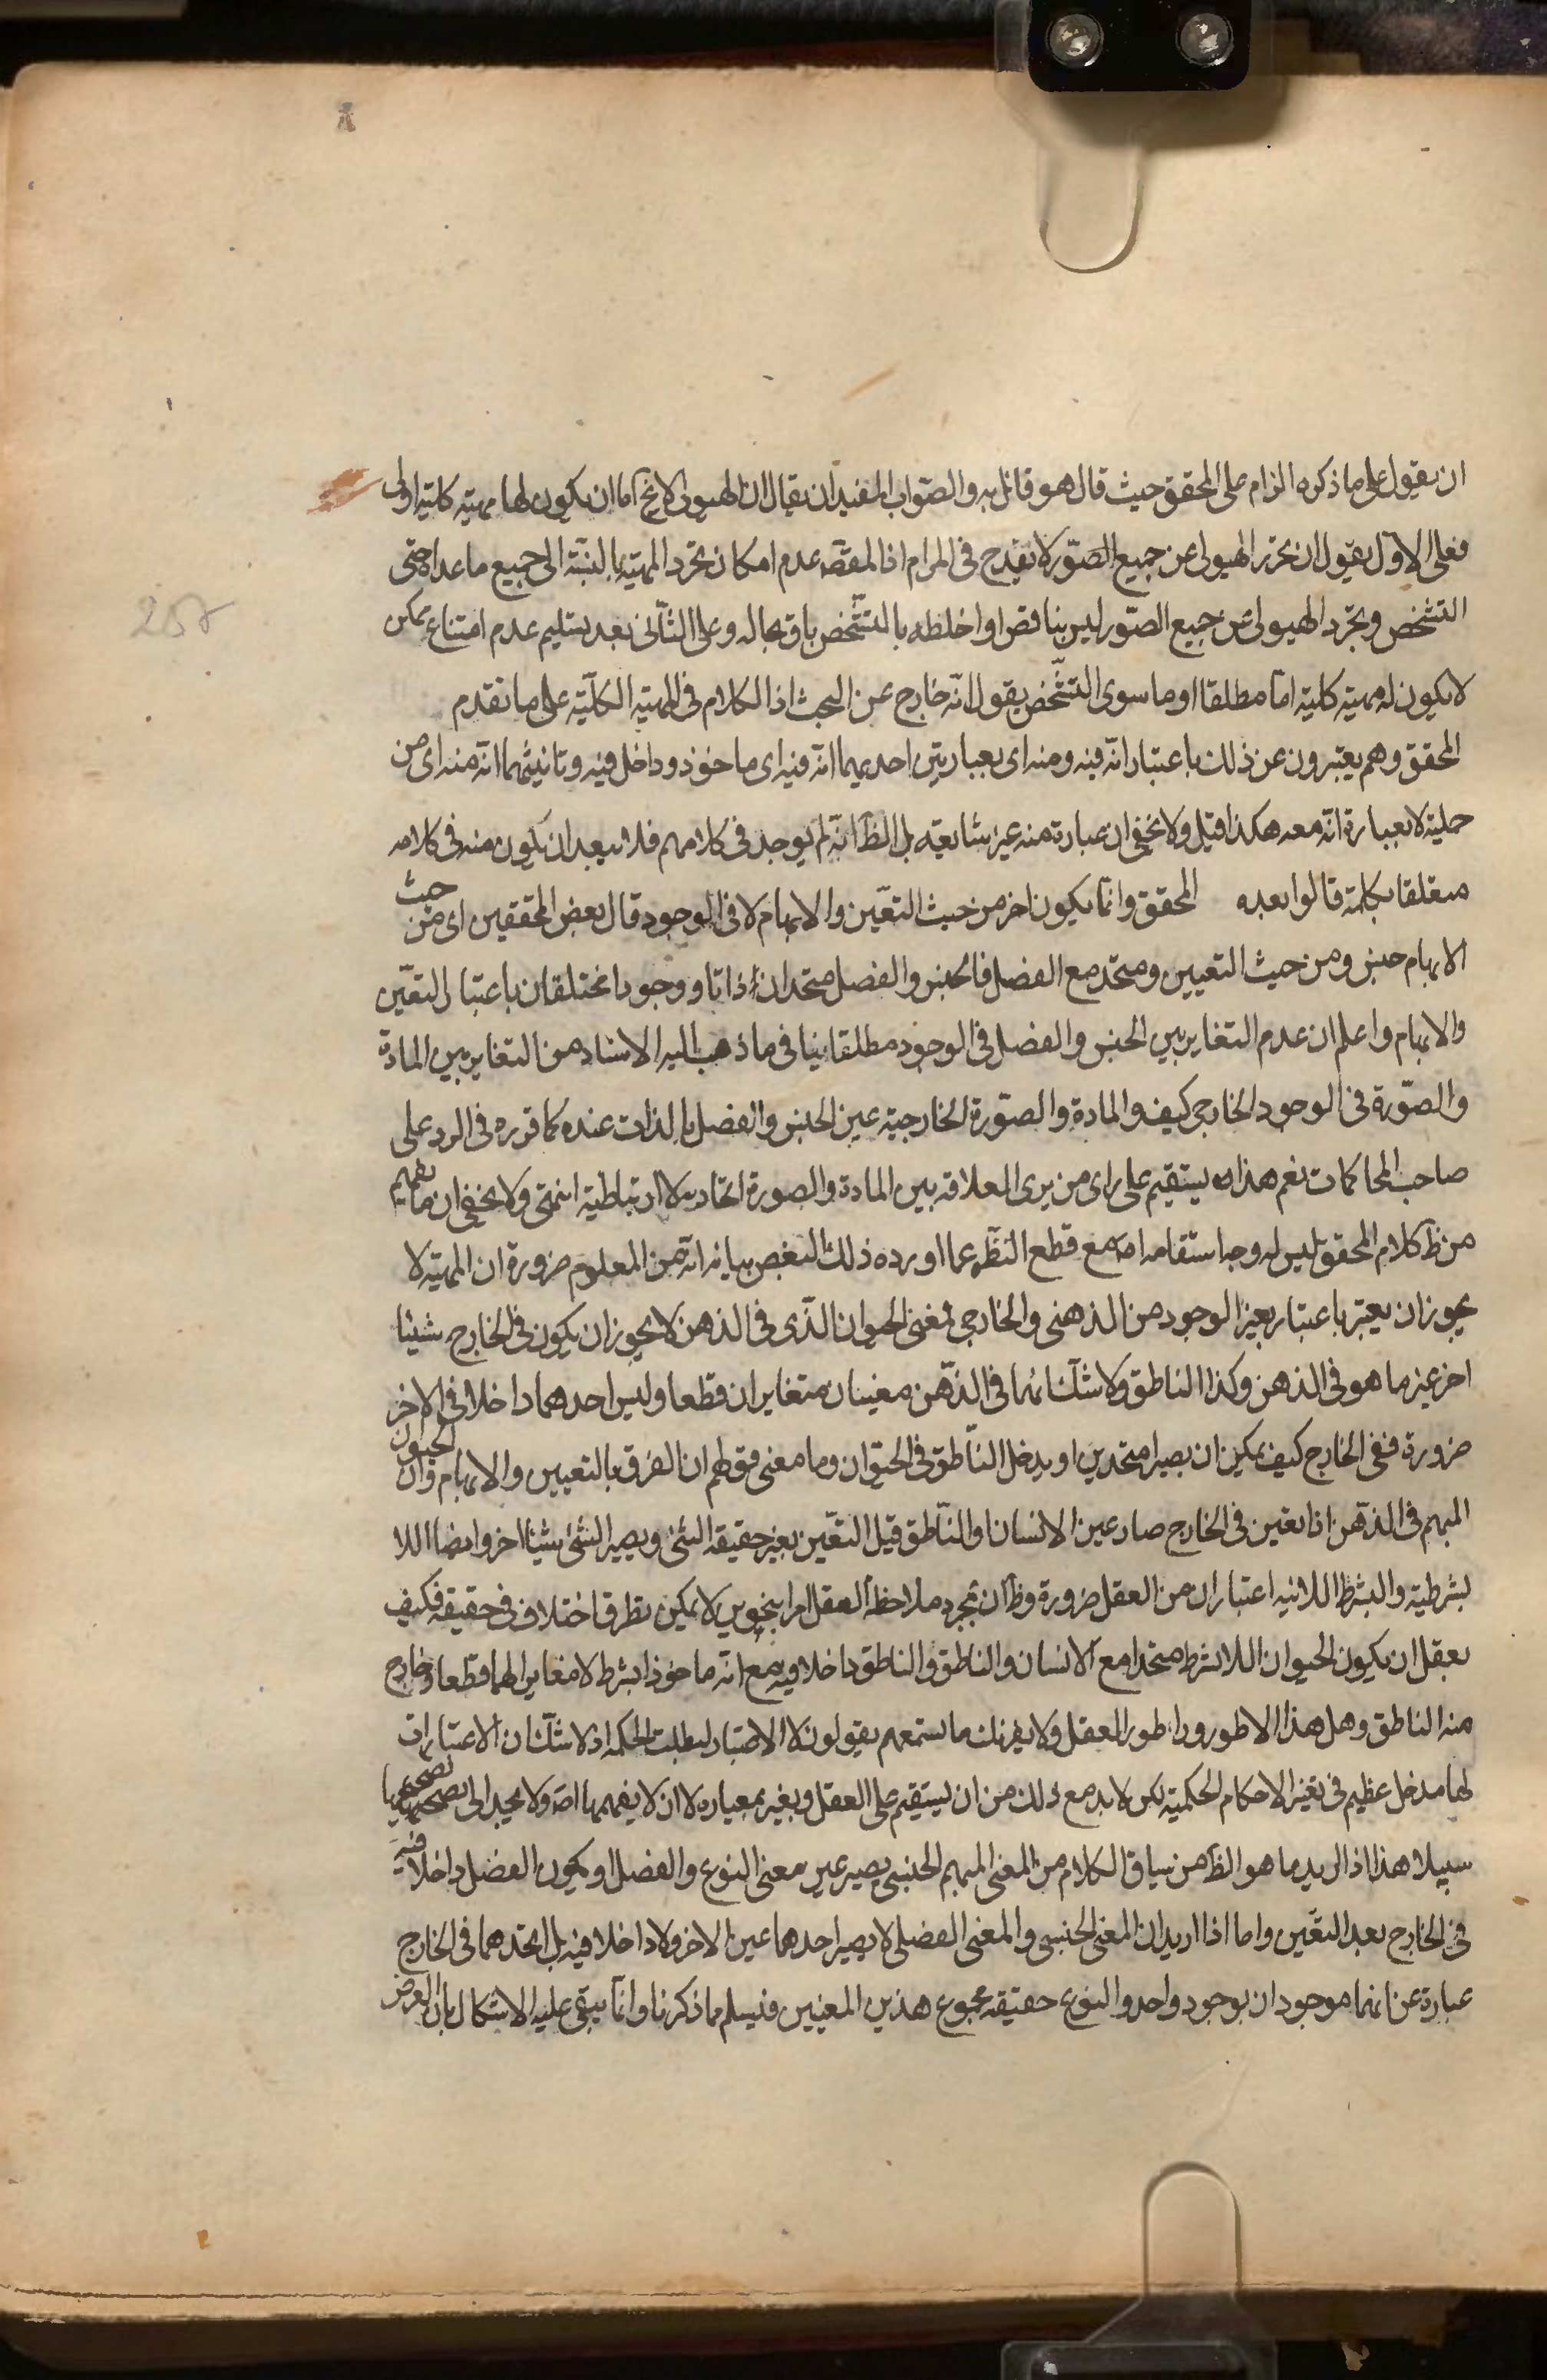 258
ان يقول على ما ذكره الزام على المحقق حيث قال هو قائل به والصّواب المفيد ان يقال ان الهيولى لا يخ اما ان يكون لها مهيته كليّة اولى
فعلى الاوّل يقول ان تجرّد الهيولى عن جميع الصّور لا يقدح فى المرام اذ المقصّه عدم امكان تجرد المهيّة بالنسبة الى جميع ما عداه حتى
التشخص وتجرّد الهيولى عن جميع الصّور ليس بنا قض او اخلطه بالتشّخص باق بحاله وعلى الثّانى بعد تسليم عدم امتناع ممكن
لا يكون له مهيّة كليّة امّا مطلقا او ما سوى التشّخص يقول انّه خارج عن البحث اذ الكلام فى المهيّة الكلّيّة على ما تقدم
المحقق وهم يعتبرون عن ذلك باعتبار انّه فيه ومنه اى بعبارتين احديهما انّه فيه اى ماخوذ وداخل فيه وثانيتهما انّه منه اى من
جملته لا بعبارة انّه معه هكذا قيل ولا يخفى ان عبارة منه غير شايعة بل الظ انّه لم يوجد فى كلامهم فلا يبعد ان يكون منه فى كلامه
متعلقا بكلمة قالوا بعده المحقق وانّما يكون اخر من حيث التعيّن والابهام لا فى الوجود قال بعض المحققين اى من حيث
الابهام جنس ومن حيث التعيين ومتحد مع الفصل فالجنس والفصل متحدان ذاتا و وجودا مختلقان باعتبار التعيّن
والابهام واعلم ان عدم التغاير بين الجنس والفصل فى الوجود مطلقا ينافى ما ذهب اليه الاستاد من التغاير بين المادة
والصّورة فى الوجود الخارجى كيف والمادة والصّورة الخارجية عين الجنس والفصل بالذات عنده كما قرره فى الرد على
صاحب المحاكمات نعم هذا يستقيم على راى من يرى العلاقه بين المادة والصورة اتحادية لا ارتباطية انتهى ولا يخفى ان ما يفهم
من ظ كلام المحقق ليس له وجه استقامه اصّه مع قطع النظر عما اورده ذلك البعض بيانه انّه من المعلوم ضرورة ان المهيّة لا
يجوز ان يعتبر باعتبار بغير الوجود من الذهنى والخارجى فمعنى الحيوان الذّى فى الذهن لا يجوز ان يكون فى الخارج شيئا
اخر غير ما هو فى الذهن وكذا الناطق ولا شك انهما فى الذّهن معنيان متغايران قطعا وليس احدهما داخلا فى الاخر
ضرورة ففى الخارج كيف يمكن ان يصيرا متحدين او يدخل النّاطق فى الحيوان وما معنى قولهم ان الفرق بالتعيين والابهام وان الحيوان
المبهم فى الذّهن اذا تعين فى الخارج صار عين الانسان او النّاطق قيل التعّين بغير حقيقة الشئ ويصير الشئ شيئا اخر وايضا اللا
بشرطية والبشرط اللائيه اعتباران من العقل ضرورة وظ ان بمجرد ملاحظة العقل امرا بنحوين لا يمكن تطرق اختلاف فى حقيقه فكيف
يعقل ان يكون الحيوان اللا بشرط متحدا مع الانسان والناطق والناطق داخلا فيه مع انّه ماخوذا بشرط لا مغاير لهما قطعا وخارج
منه الناطق وهل هذا الا طور وراء طور العقل ولا يغرنك ما ستمعهم يقولون لولا الاعتبار لبطلت الحكمة اذ لا شك ان الاعتبارات
لها مدخل عظيم فى تغير الاحكام الحكمية لكن لا بد مع ذلك من ان يستقيم على العقل ويغير بمعياره لا ان لا يفهمها اصّه ولا يجد الى تصحيحها
سبيلا هذا اذا اريد ما هو الظ من سياق الكلام من المعنى المبهم الجنسى يصير عين معنى النوع والفصل او يكون الفصل داخلا فيه
فى الخارج بعد التعّين واما اذا اريد ان المعنى الجنسى والمعنى الفصلى لا يصير احدهما عين الاخر ولا داخلا فيه بل اتحدهما فى الخارج
عبارة عن انهما موجودان بوجود واحد والنوع حقيقه مجموع هذين المعنيين فيسلم مما ذكرنا وانما يبقى عليه الاشكال بان العرض